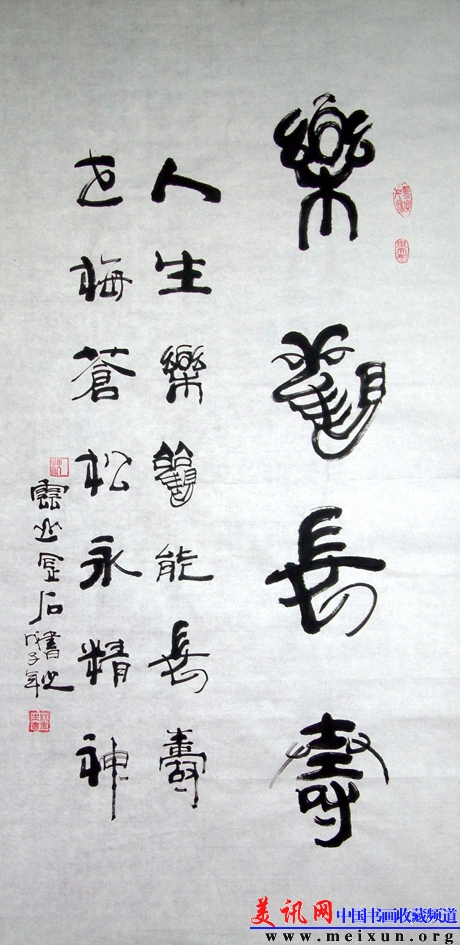 樂觀長壽
人生樂觀能長壽
老梅蒼松永精神
戊子年
美讯网 中国书画收藏频道
www.meixun.org